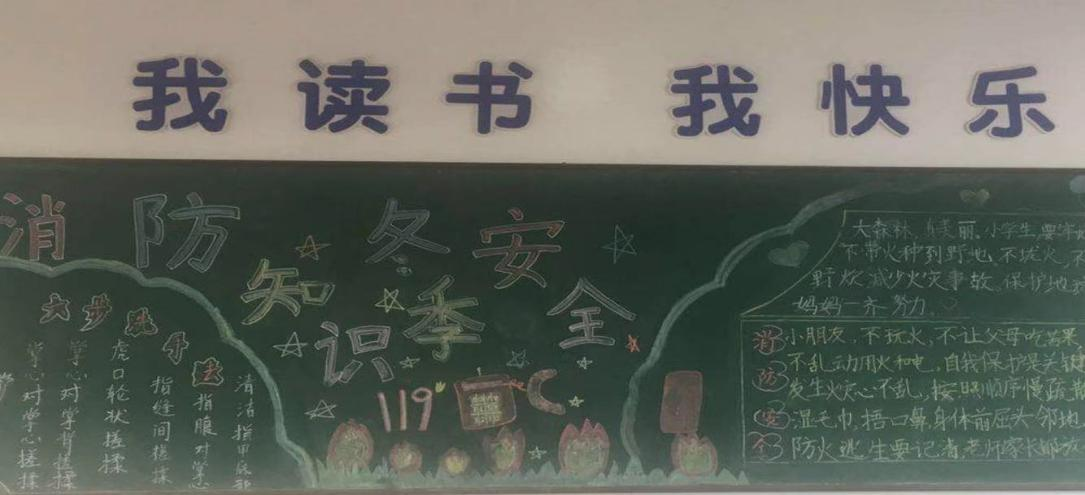 我读书 我快乐
消防知识 冬季安全
六步洗手法
掌心对掌心搓揉
掌心对掌背搓揉
虎口轮状搓揉
指缝间搓揉
指腹对掌心
清洁指甲
119
大森林,美丽,小学生要牢
不带火种到野地,不玩火,不
野炊,减少火灾事故,保护地球
妈妈一齐努力。
消防安全
小朋友,不玩火,不让父母吃苦果
不乱动用火和电,自我保护是关键
发生火灾心不乱,按照顺序慢疏散
湿毛巾,捂口鼻,身体前屈头邻地
防火逃生要记清,老师家长都放